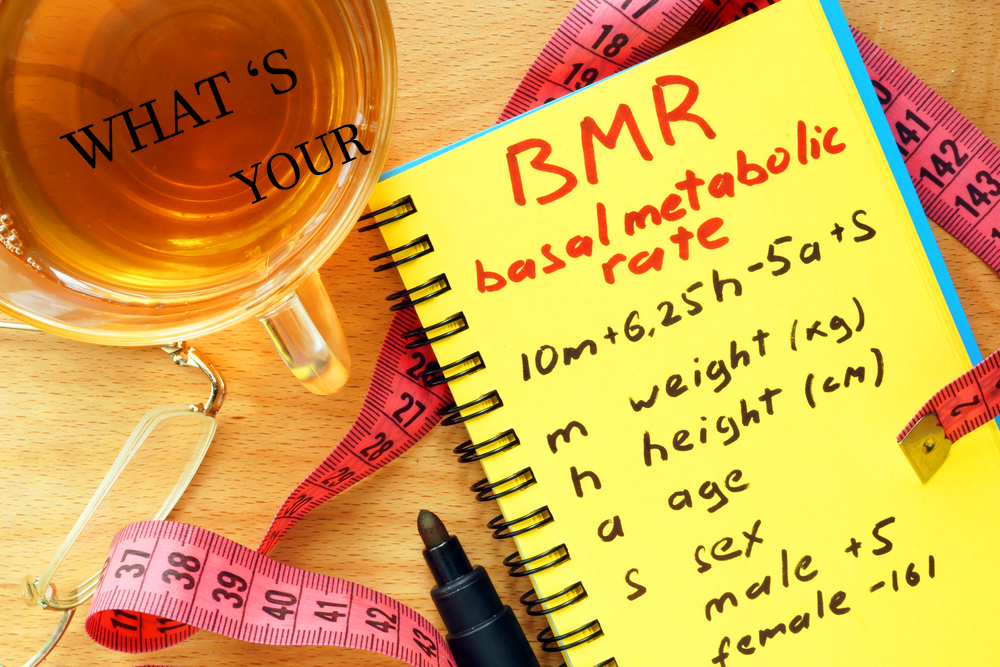 WHAT 'S
YOUR
BMR
basal metabolic
rate
10m+6,25h-5a+S
m weight (kg)
h height (cm)
a age
s sex
male +5
female -161
18
19
141
142
143
2
26
27
28
29
37
38
39
40
41
42
43